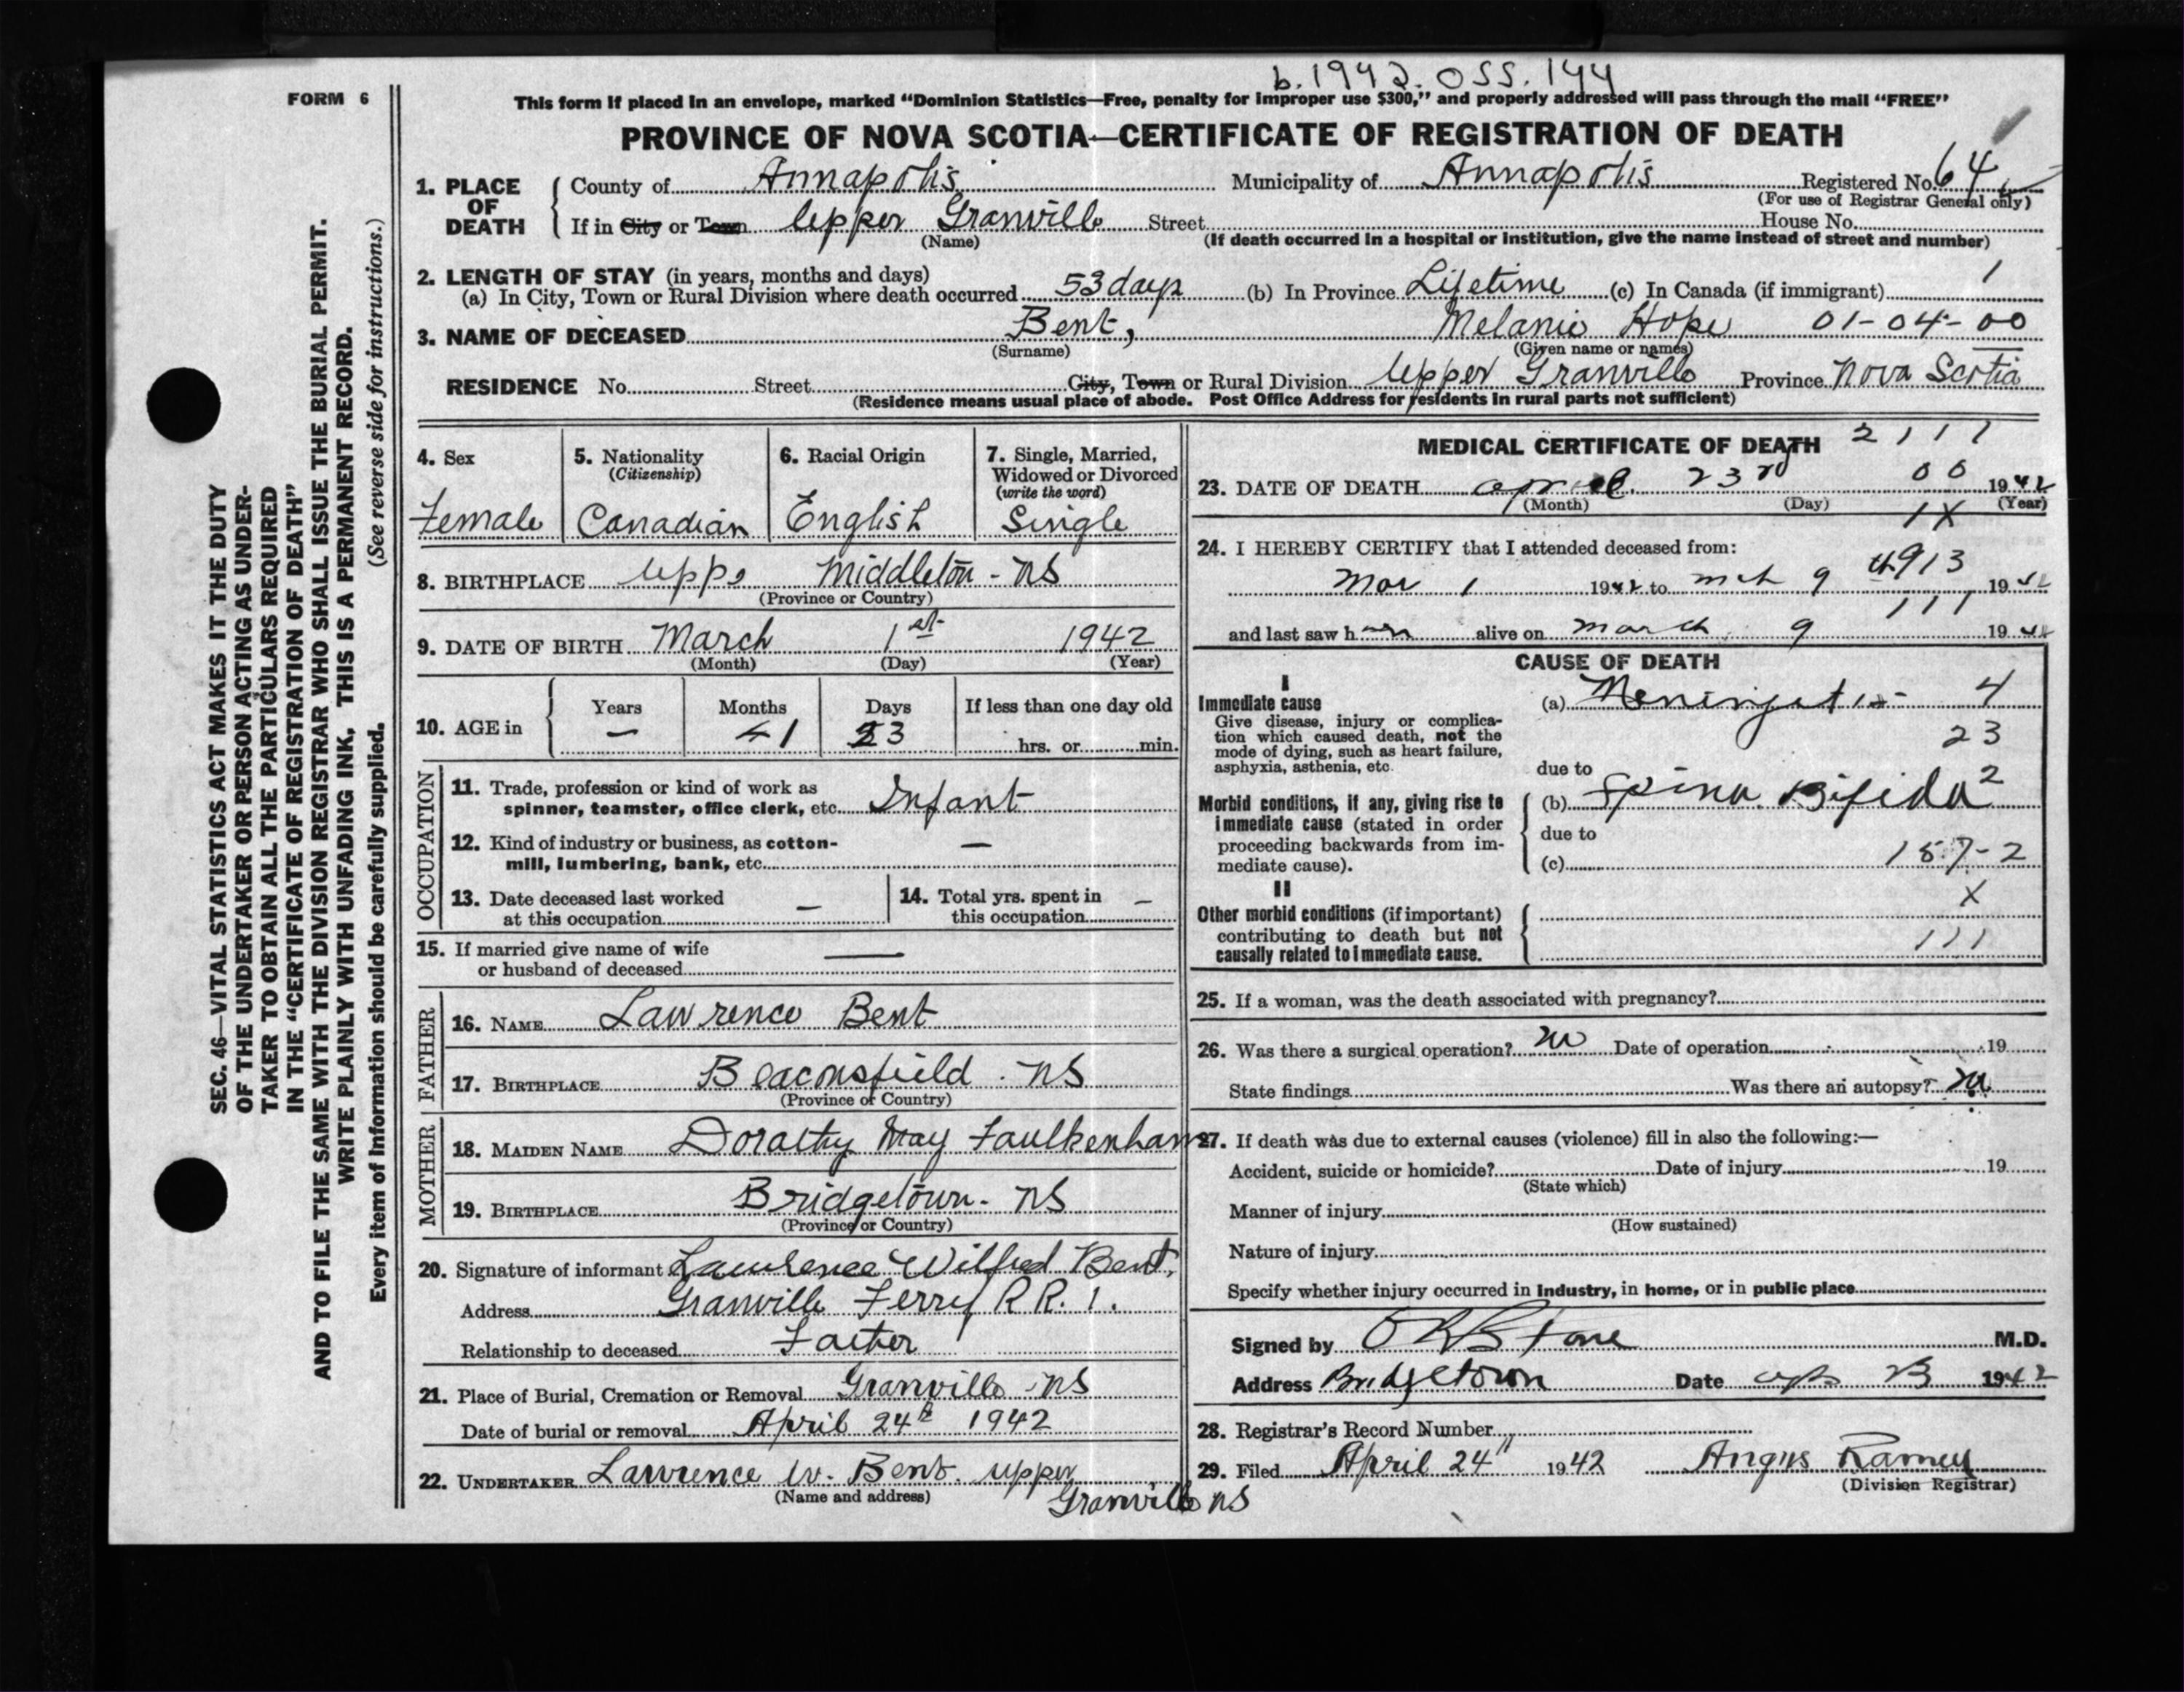 b. 1942. 055. 144
FORM 6
This form if placed in an envelope, marked “Dominion Statistics—Free, penalty for improper use $300,” and properly addressed will pass through the mail “FREE”
PROVINCE OF NOVA SCOTIA—CERTIFICATE OF REGISTRATION OF DEATH
1. PLACE OF DEATH County of Annapolis Municipality of Annapolis Registered No. 64
(For use of Registrar General only)
If in City or Town Upper Granville Street House No.
(Name) (If death occurred in a hospital or institution, give the name instead of street and number)
2. LENGTH OF STAY (in years, months and days)
(a) In City, Town or Rural Division where death occurred 53 days (b) In Province Lifetime (c) In Canada (if immigrant) 1
3. NAME OF DECEASED Bent, Melanie Hope 01-04-00
(Surname) (Given name or names)
RESIDENCE No. Street City, Town or Rural Division Upper Granville Province Nova Scotia
(Residence means usual place of abode. Post Office Address for residents in rural parts not sufficient)
4. Sex
Female
5. Nationality
(Citizenship)
Canadian
6. Racial Origin
English
7. Single, Married,
Widowed or Divorced
(write the word)
Single
8. BIRTHPLACE Middleton - NS
(Province or Country)
9. DATE OF BIRTH March 1st 1942
(Month) (Day) (Year)
10. AGE in Years Months Days If less than one day old
— 1 23 hrs. or min.
OCCUPATION
11. Trade, profession or kind of work as
spinner, teamster, office clerk, etc. Infant
12. Kind of industry or business, as cotton-
mill, lumbering, bank, etc. —
13. Date deceased last worked
at this occupation —
14. Total yrs. spent in
this occupation —
15. If married give name of wife
or husband of deceased —
FATHER
16. NAME Lawrence Bent
17. BIRTHPLACE Beaconsfield. NS
(Province or Country)
MOTHER
18. MAIDEN NAME Dorathy May Faulkenham
19. BIRTHPLACE Bridgetown - NS
(Province or Country)
20. Signature of informant Lawrence Wilfred Bent,
Address Granville Ferry R R. 1.
Relationship to deceased Father
21. Place of Burial, Cremation or Removal Granville - NS
Date of burial or removal April 24th 1942
22. UNDERTAKER Lawrence W. Bent. Upper
(Name and address) Granville NS
MEDICAL CERTIFICATE OF DEATH 2111
23. DATE OF DEATH April 23rd 00 1942
(Month) (Day) (Year)
1X
24. I HEREBY CERTIFY that I attended deceased from:
4913
Mar 1 1942 to mch 9 1942
111
and last saw her alive on march 9 1942
CAUSE OF DEATH
I
Immediate cause
Give disease, injury or complica-
tion which caused death, not the
mode of dying, such as heart failure,
asphyxia, asthenia, etc.
(a) Meningitis - 4
23
due to
Morbid conditions, if any, giving rise to
immediate cause (stated in order
proceeding backwards from im-
mediate cause).
(b) Spina Bifida 2
due to
(c) 157-2
II
X
Other morbid conditions (if important)
contributing to death but not
causally related to immediate cause.
111
25. If a woman, was the death associated with pregnancy?
26. Was there a surgical operation? no Date of operation 19
State findings Was there an autopsy? no
27. If death was due to external causes (violence) fill in also the following:—
Accident, suicide or homicide? Date of injury 19
(State which)
Manner of injury
(How sustained)
Nature of injury
Specify whether injury occurred in industry, in home, or in public place
Signed by Stone M.D.
Address Bridgetown Date Apr 23 1942
28. Registrar's Record Number
29. Filed April 24th 1942 Angus Ramey
(Division Registrar)
SEC. 46—VITAL STATISTICS ACT MAKES IT THE DUTY
OF THE UNDERTAKER OR PERSON ACTING AS UNDER-
TAKER TO OBTAIN ALL THE PARTICULARS REQUIRED
IN THE “CERTIFICATE OF REGISTRATION OF DEATH”
AND TO FILE THE SAME WITH THE DIVISION REGISTRAR WHO SHALL ISSUE THE BURIAL PERMIT.
WRITE PLAINLY WITH UNFADING INK, THIS IS A PERMANENT RECORD.
(See reverse side for instructions.)
Every item of information should be carefully supplied.